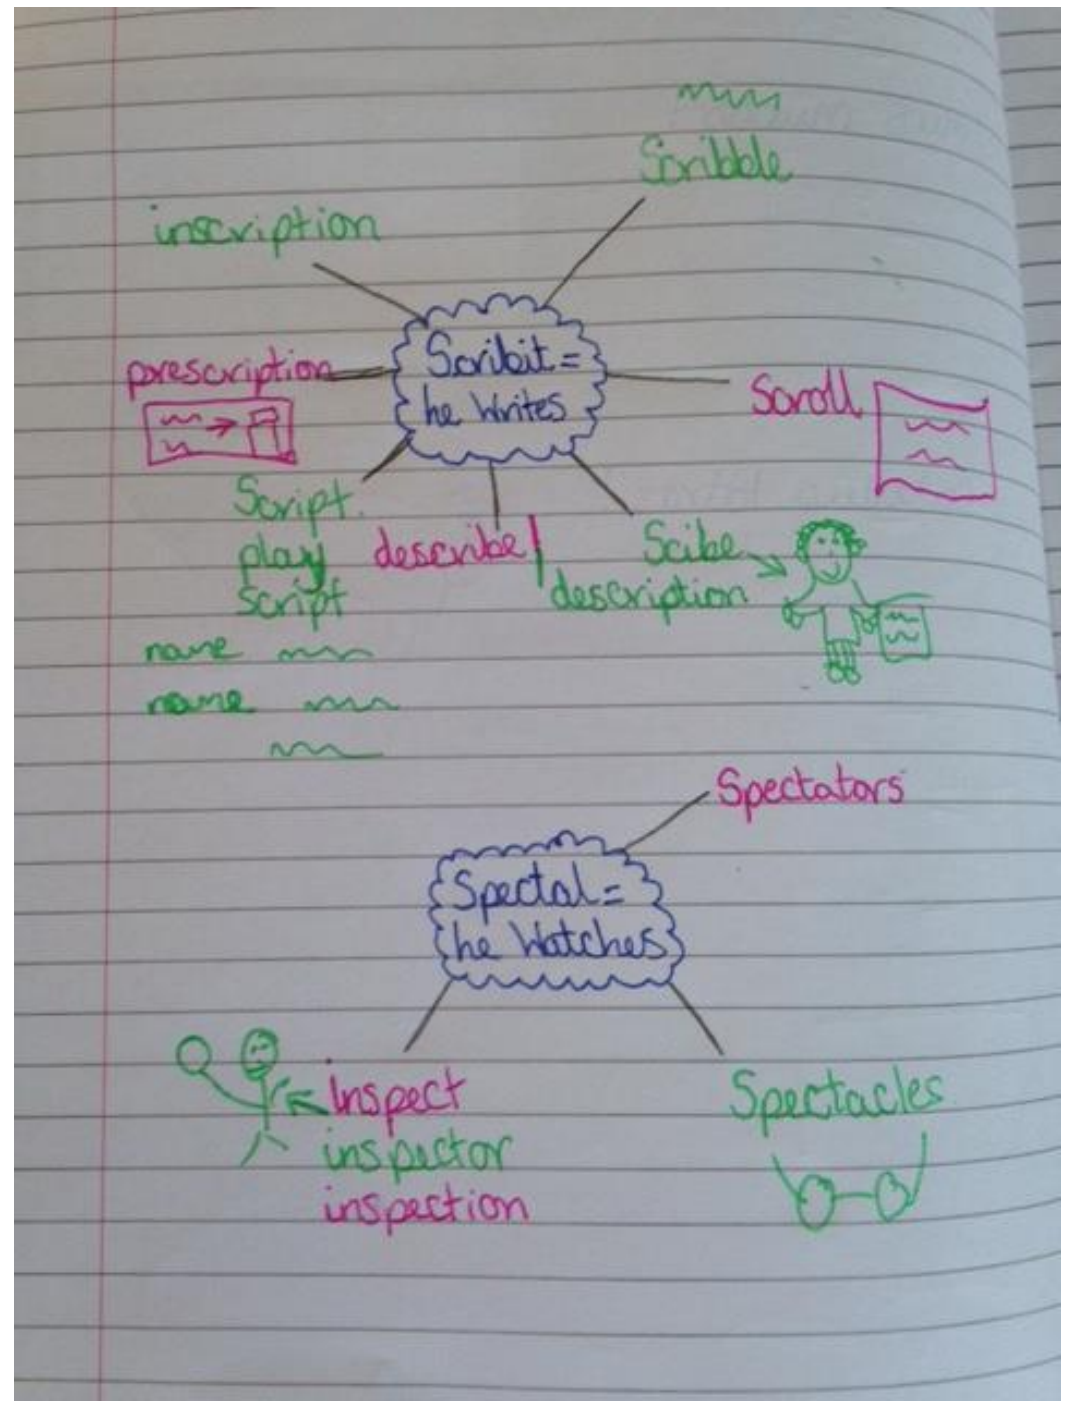 Scribble
inscription
Scribit =
he Writes
prescription
Scroll
Script.
play
script
describe/
Scibe
description
name
name
Spectators
Spectat =
he Watches
Inspect
inspector
inspection
Spectacles